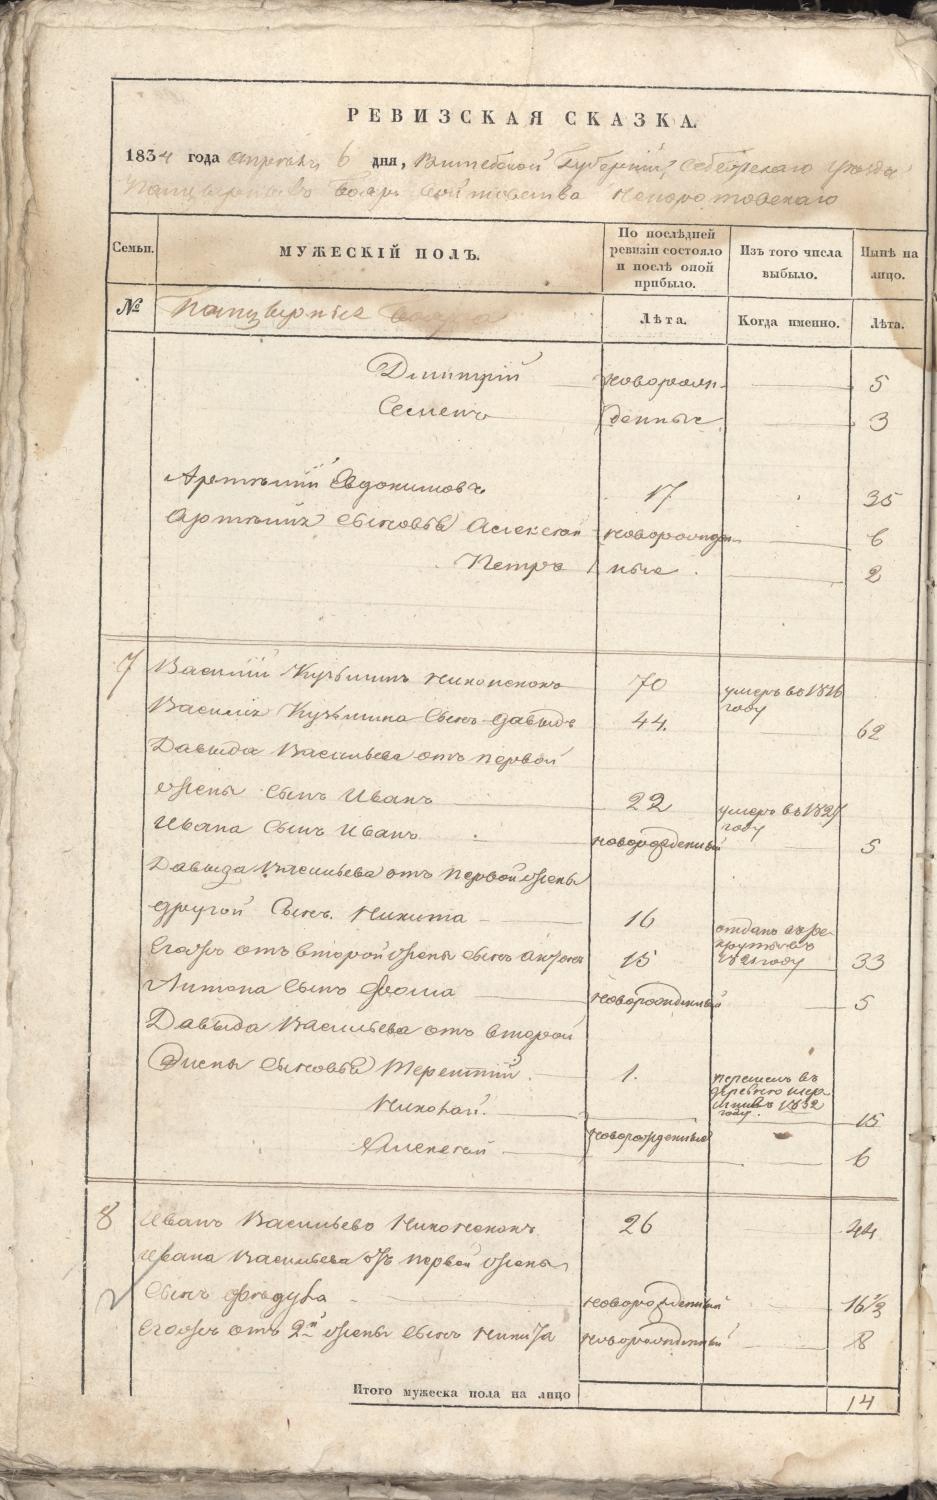 РЕВИЗСКАЯ СКАЗКА.
1834 года апреля 6 дня, Витебской Губернии, Себежскаго уезда
Панцырныхъ бояръ войтовства Непоротовскаго
Семьи. МУЖЕСКІЙ ПОЛЪ. По послѣдней ревизіи состояло и послѣ оной прибыло. Изъ того числа выбыло. Нынѣ на лицо.
№ Панцырные бояра Лѣта. Когда именно. Лѣта.
Дмитрій новорож- 5
Семенъ денные 3
Артемій Евдокимовъ 17 35
Артемія сыновья Алексей новорожден- 6
Петръ ные 2
7 Василій Кузьминъ 70 умеръ въ 1826 году
Василія Кузьмина сынъ Давыдъ 44. 62
Давыда Васильева отъ первой
жены сынъ Иванъ 22 умеръ въ 1827 году
Ивана сынъ Иванъ новорожденный 5
Давыда Васильева отъ первой жены
другой сынъ Никита 16 отданъ въ рекруты въ году
Егожъ отъ второй жены сынъ Антонъ 15 33
Антона сынъ Фома новорожденный 5
Давыда Васильева отъ второй
жены сыновья Терентій 1. перешелъ въ деревню 1832 году.
Николай. 15
новорожденные
Алексей 6
8 Иванъ Васильевъ 26 44
Ивана Васильева отъ первой жены
сынъ новорожденный 16 1/2
Егожъ отъ 2й жены сынъ Никита новорожденный 8
Итого мужеска пола на лицо 14